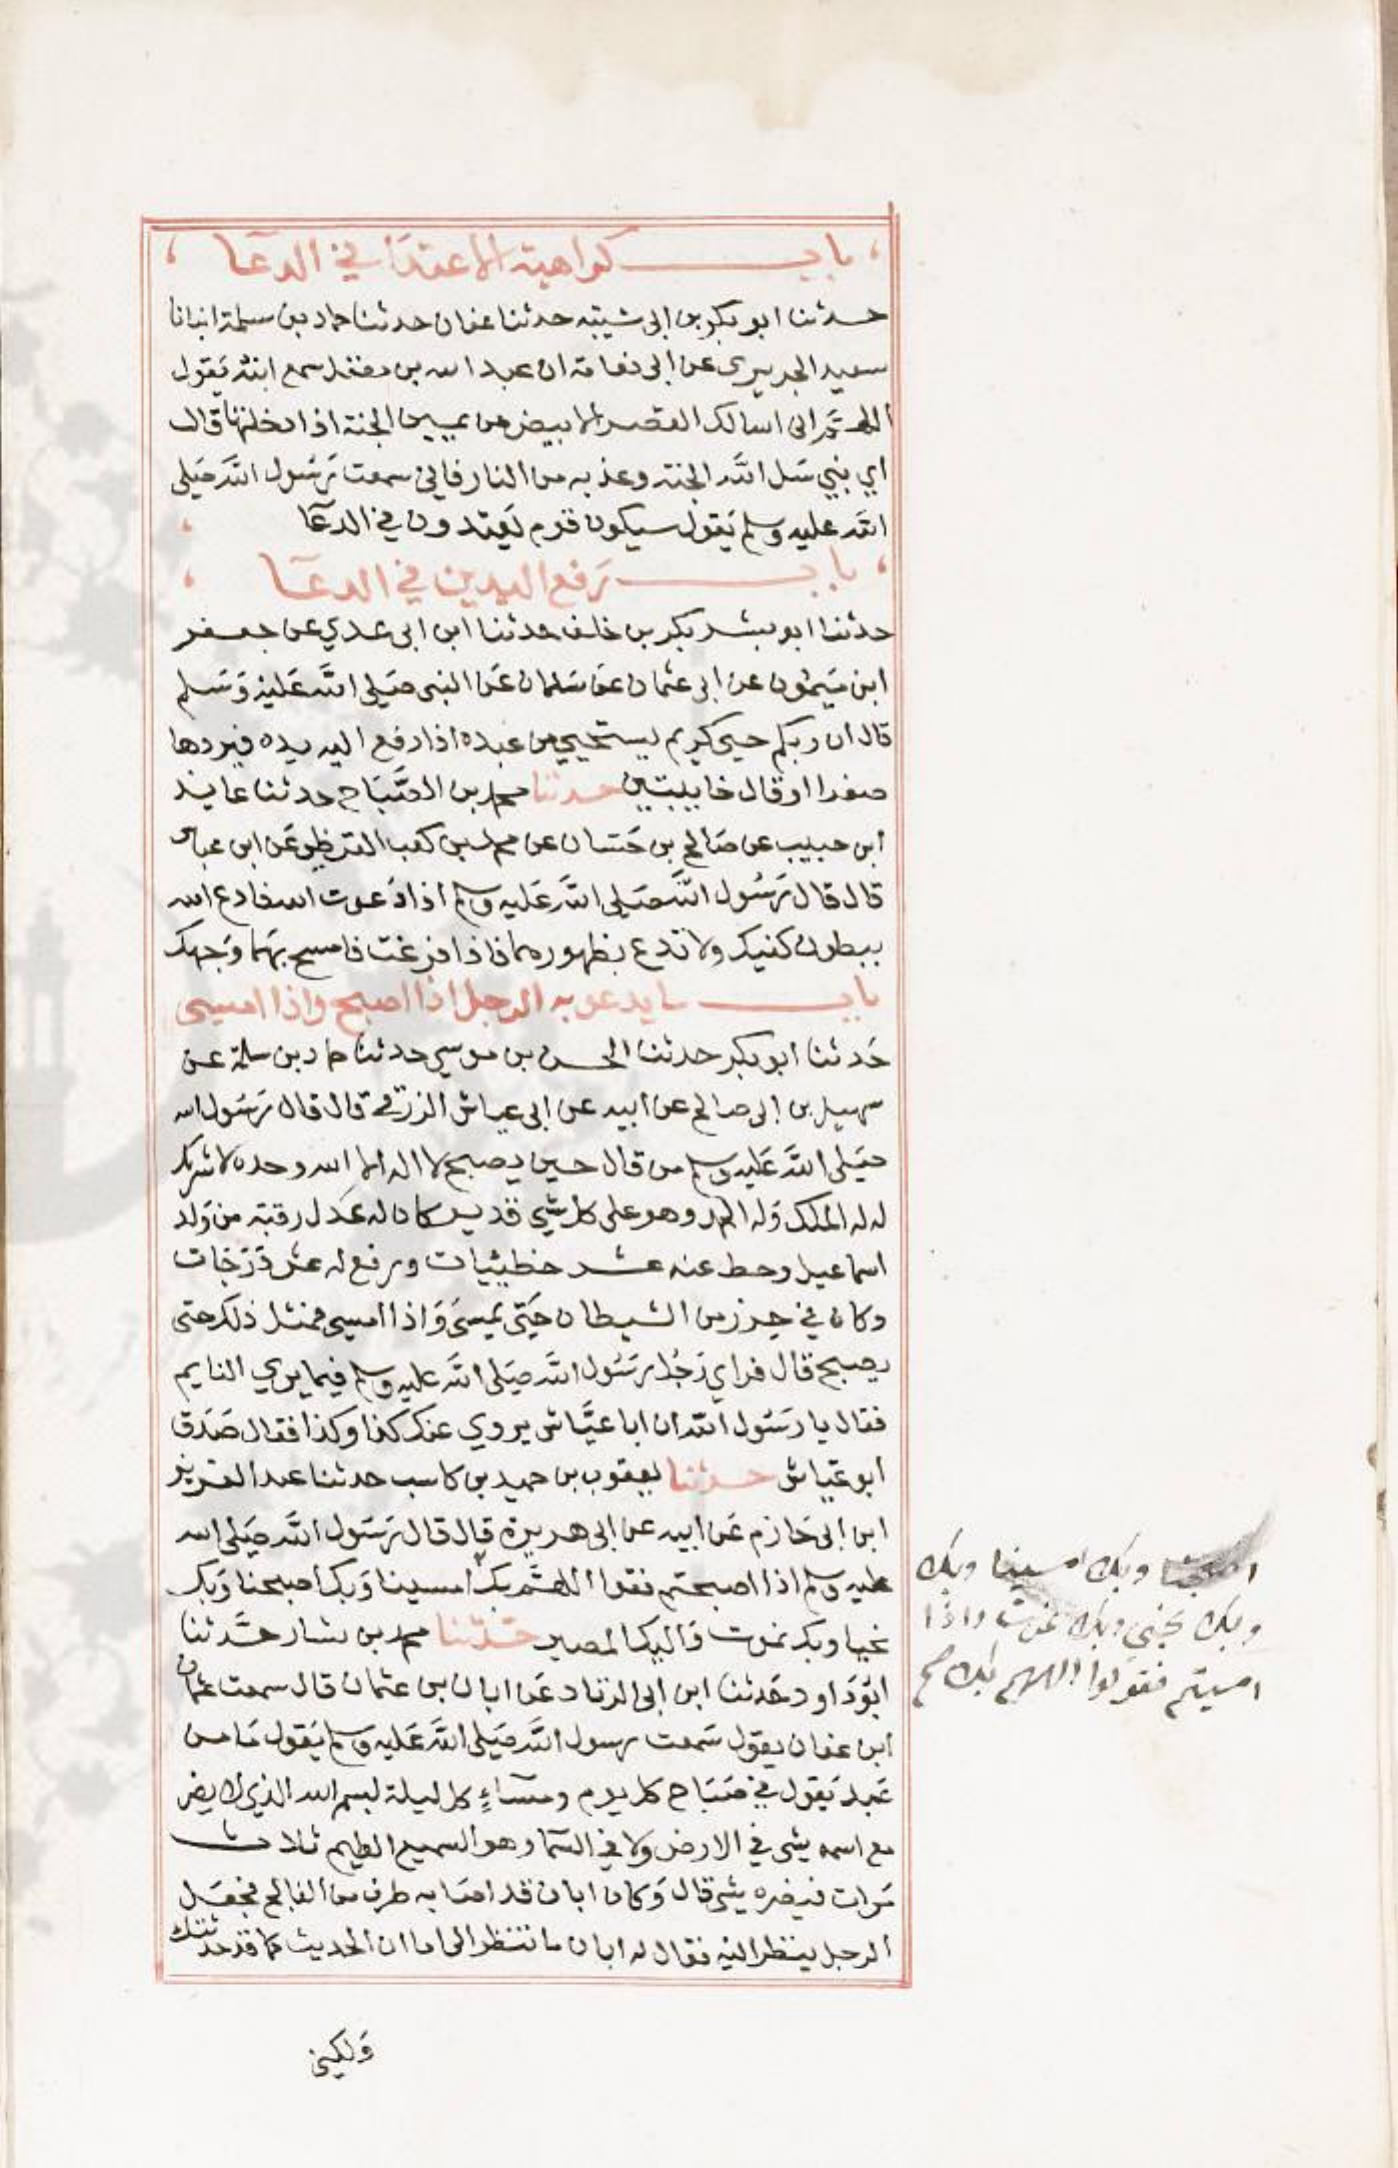 باب كراهية الاعتدا في الدعا
حدثنا ابو بكر بن ابي شيبه حدثنا عفان حدثنا حماد بن سلمة انبانا
سعيد الجريري عن ابي نعامة ان عبد الله بن مغفل سمع ابنه يقول
اللهم اني اسالك القصر الابيض من يمين الجنة اذا دخلتها قال
اي بني سل الله الجنة وعذ به من النار فاني سمعت رسول الله صلى
الله عليه وسلم يقول سيكون قوم يعتدون في الدعا
باب رفع اليدين في الدعا
حدثنا ابو بشر بكر بن خلف حدثنا ابن ابي عدي عن جعفر
ابن ميمون عن ابي عثمان عن سلمان عن النبي صلى الله عليه وسلم
قال ان ربكم حيي كريم يستحيي من عبده اذا رفع اليه يده فيردها
صفرا او قال خايبتين حدثنا محمد بن الصباح حدثنا عايذ
ابن حبيب عن صالح بن حسان عن محمد بن كعب القرظي عن ابن عباس
قال قال رسول الله صلى الله عليه وسلم اذا دعوت الله فادع الله
ببطون كفيك ولا تدع بظهورهما فاذا فرغت فامسح بهما وجهك
باب ما يدعو به الرجل اذا اصبح واذا امسى
حدثنا ابو بكر حدثنا الحسن بن موسي حدثنا حماد بن سلمة عن
سهيل بن ابي صالح عن ابيه عن ابي عياش الزرقي قال قال رسول الله
صلى الله عليه وسلم من قال حين يصبح لا اله الا الله وحده لا شريك
له له الملك وله الحمد وهو على كل شي قدير كان له عدل رقبة من ولد
اسماعيل وحط عنه عشر خطيئات ورفع له عشر درجات
وكان في حرز من الشيطان حتى يمسي واذا امسى فمثل ذلك حتى
يصبح قال فراي رجل رسول الله صلى الله عليه وسلم فيما يري النايم
فقال يا رسول الله ان ابا عياش يروي عنك كذا وكذا فقال صدق
ابو عياش حدثنا يعقوب بن حميد بن كاسب حدثنا عبد العزيز
ابن ابي حازم عن ابيه عن ابي هريرة قال قال رسول الله صلى الله
عليه وسلم اذا اصبحتم فقولوا اللهم بك امسينا وبك اصبحنا وبك
نحيا وبك نموت واليك المصير حدثنا محمد بن بشار حدثنا
ابو داود حدثنا ابن ابي الزناد عن ابان بن عثمان قال سمعت عثمان
ابن عفان يقول سمعت رسول الله صلى الله عليه وسلم يقول ما من
عبد يقول في صباح كل يوم ومساء كل ليلة بسم الله الذي لا يضر
مع اسمه شي في الارض ولا في السما وهو السميع العليم ثلاث
مرات فيضره شي قال وكان ابان قد اصابه طرف من الفالج فجعل
الرجل ينظر اليه فقال له ابان ما تنظر الى اما ان الحديث كما قد حدثتك
ولكني
اصبحنا وبك امسينا وبك
وبك نحيى وبك نموت واذا
امسيتم فقولوا اللهم بك صح